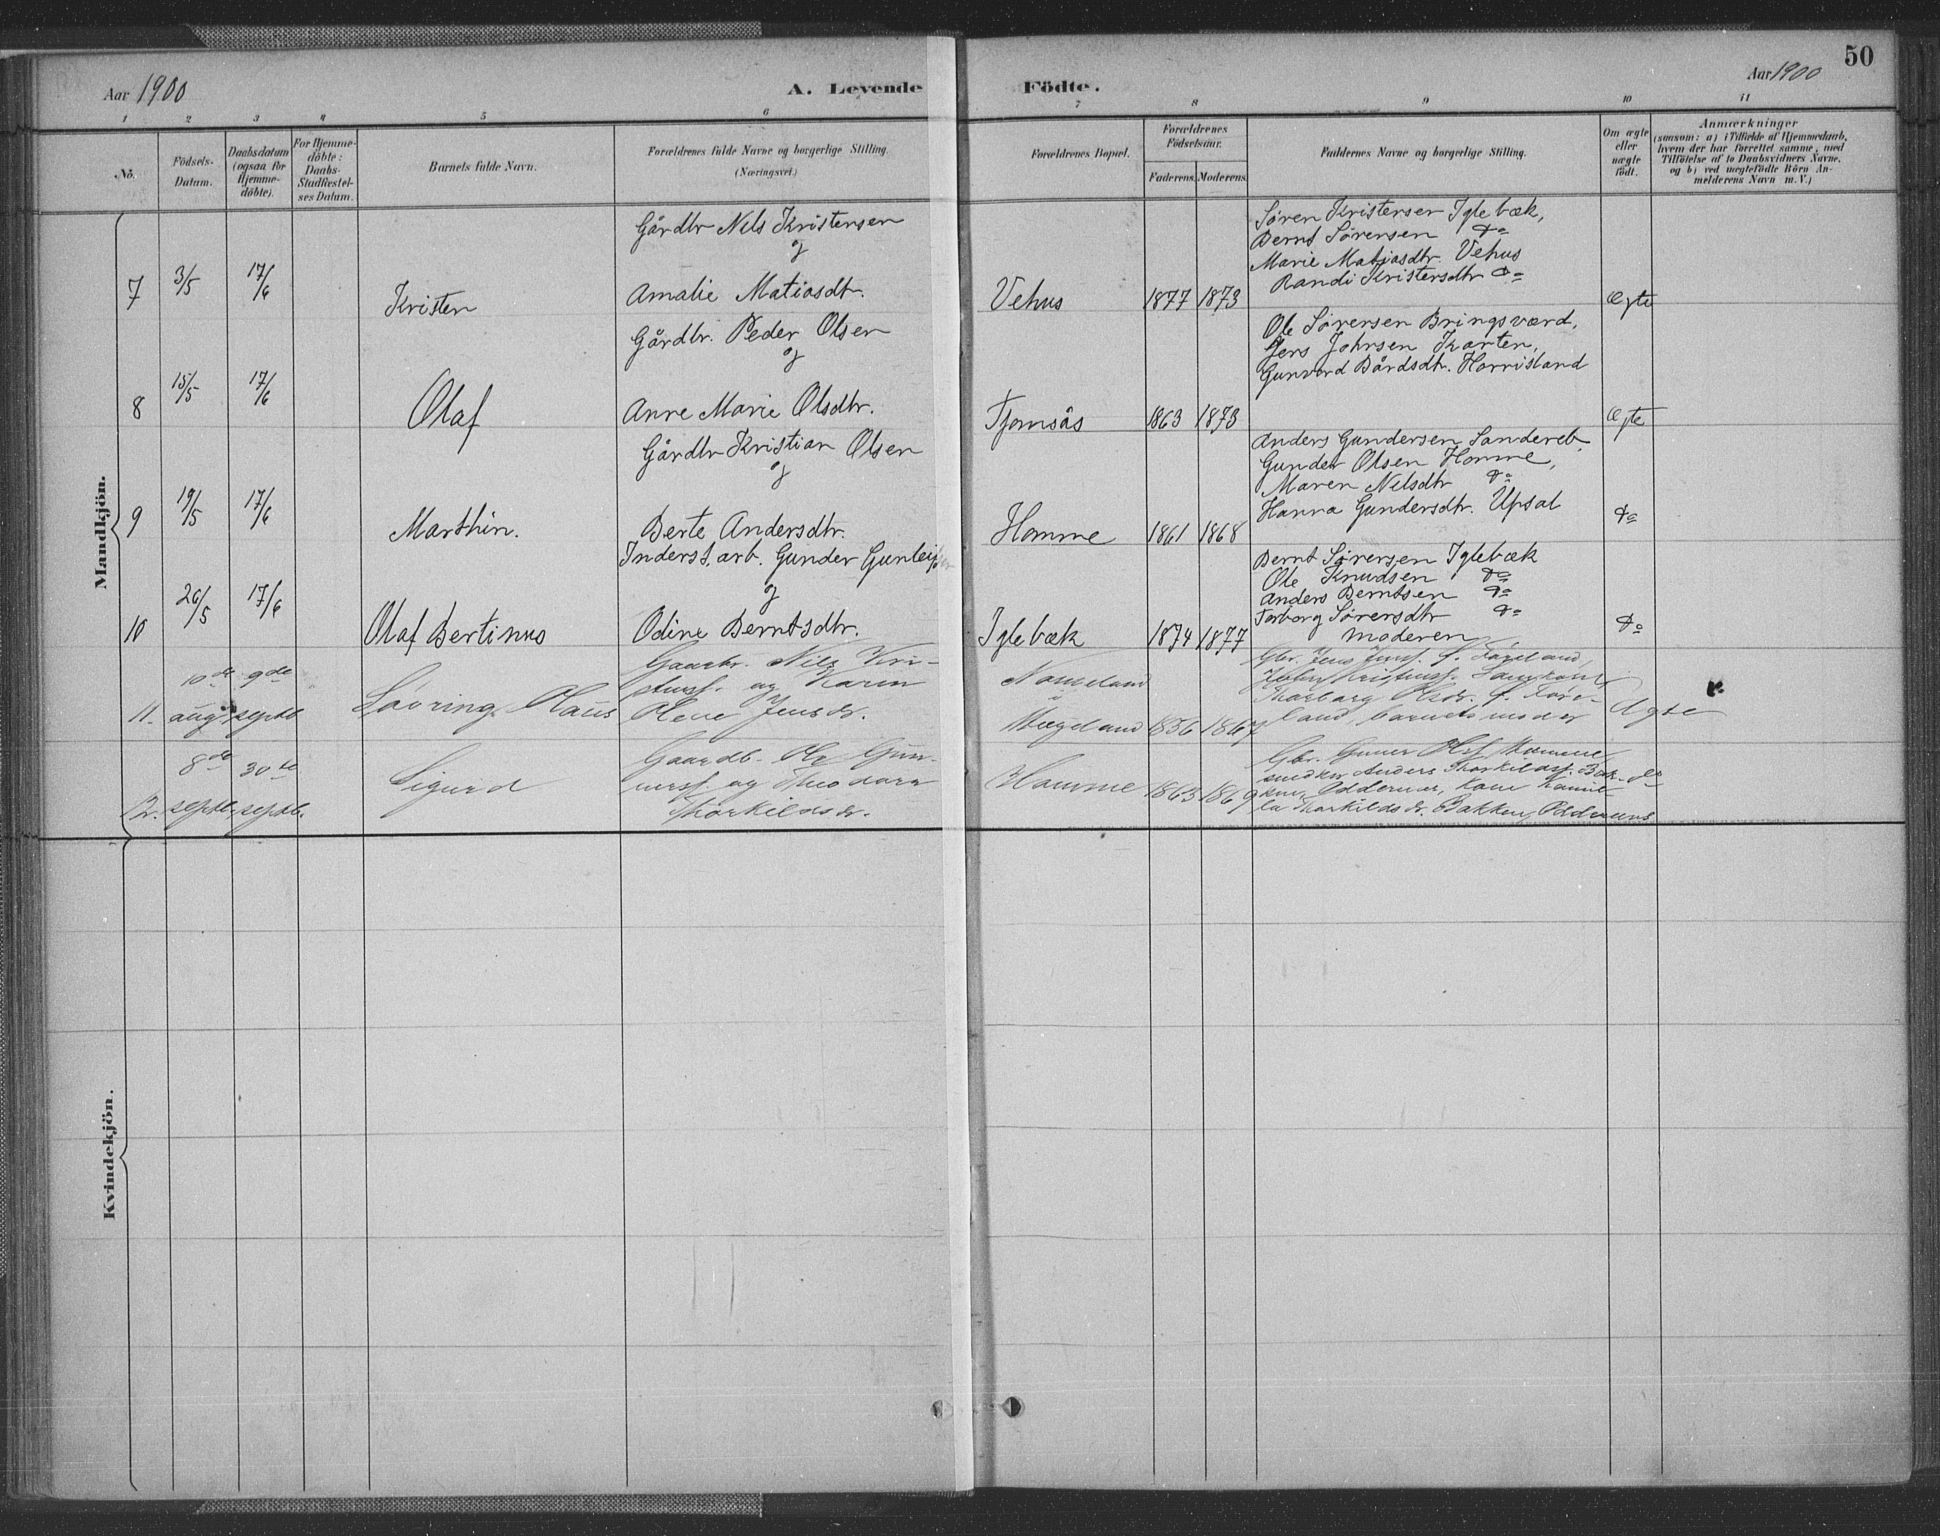 50
Aar 1900
A. Levende Födte.
Aar 1900
1 2 3 4 5 6 7 8 9 10 11
No.
Födsels-Datum.
Daabsdatum (ogsaa for Hjemmedöbte).
For Hjemmedöbte: Daabs-Stadfæstelses Datum.
Barnets fulde Navn.
Forældrenes fulde Navne og borgerlige Stilling.
(Næringsvei.)
Forældrenes Bopæl.
Forældrenes Födselsaar.
Faderens. Moderens.
Faddernes Navne og borgerlige Stilling.
Om ægte eller uægte födt.
Anmærkninger
(saasom: a) i Tilfælde af Hjemmedaab, hvem der har forrettet samme, med Tilföielse af to Daabsvidners Navne, og b) ved uægtefödte Börn Anmelderens Navn m. V.)
Mandkjön.
7 3/5 17/6 Kristen
Gårdbr Nils Kristensen
og
Amalie Matiasdtr.
Vehus 1877 1873
Søren Kristensen Iglebæk,
Bernt Sørensen do
Marie Matiasdtr. Vehus
Randi Kristensdtr do
Ægte
8 15/5 17/6 Olaf
Gårdbr. Peder Olsen
og
Anne Marie Olsdtr.
Tjomsås 1863 1873
Ole Sørensen Bringsværd,
Jens Johnsen Karten,
Gunvord Bårdsdtr. Horrisland
Ægte
9 19/5 17/6 Marthin.
Gårdbr Kristian Olsen
og
Berte Andersdtr.
Homme 1861 1868
Anders Gundersen
Gunder Olsen Homme,
Maren Nilsdtr do
Hanna Gundersdtr. Upsal
do
10 26/5 17/6 Olaf Bertinus
Inderst. arb. Gunder
og
Odine Berntsdtr.
Iglebæk 1874 1877
Bernt Sørensen Iglebæk
Ole Knudsen do
Anders Berntsen do
Torborg Sørensdtr do
Moderen
do
11. 10de aug. 9de septb. Olaus
Gaardbr. Nils Kri-
stenss. og Karen
Olene Jensdr.
1856 1867
Gbr. Jens Jenss.
land, barnets moder
Ægte
12. 8de septb. 30te septb. Sigurd
Gaardb. Ole Gun-
nerss. og Theodora
Thorkildsdr.
Homme 1863 1869
Gbr. Gunner Olss. Homme
snedker Anders Thorkildss. Bak-
ken, Oddernes, Kone
Thorkildsdr. Bakken, Oddernes
do
Kvindekjön.